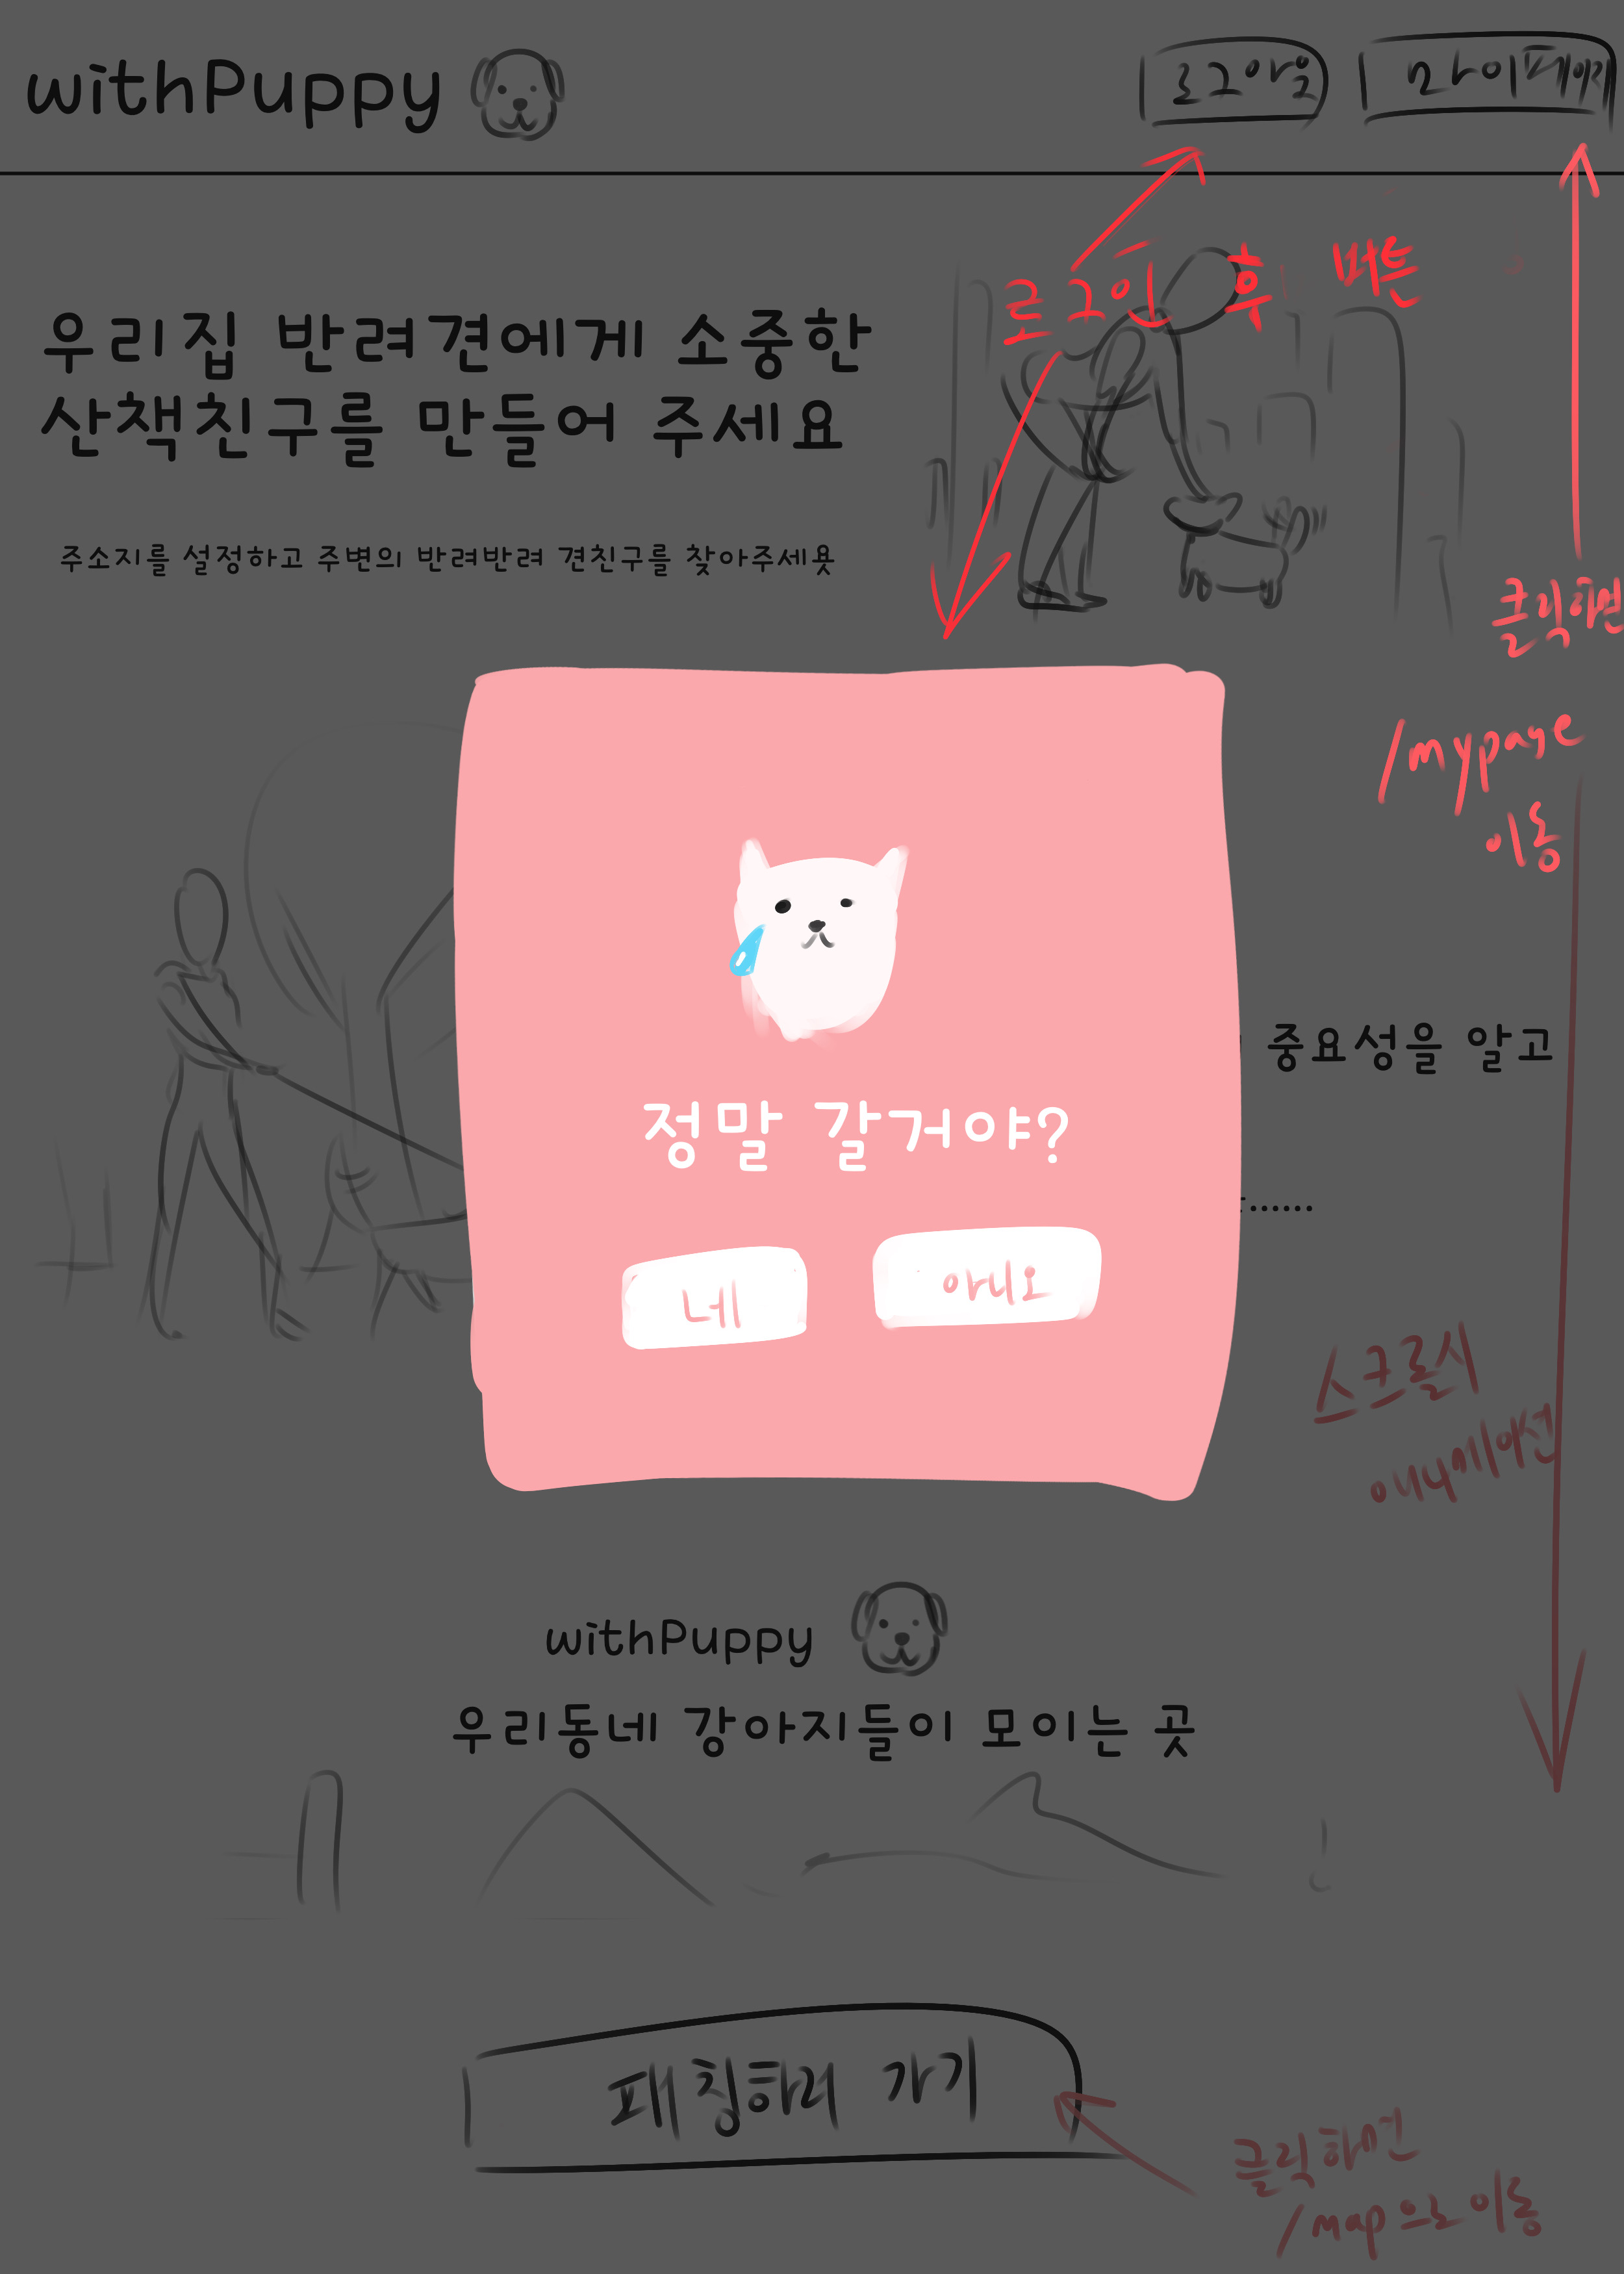 withPuppy
로그아웃 마이페이지
로그인 후 버튼
우리집 반려견에게 소중한
산책친구를 만들어 주세요
주소지를 설정하고 주변의 반려반려 견친구를 찾아주세욧
클릭하면
/mypage
이동
중요성을 알고
정말 갈거야?
......
네 아니오
스크롤시
애니메이션
withPuppy
우리동네 강아지들이 모이는 곳
가기
클릭하면
/map으로 이동